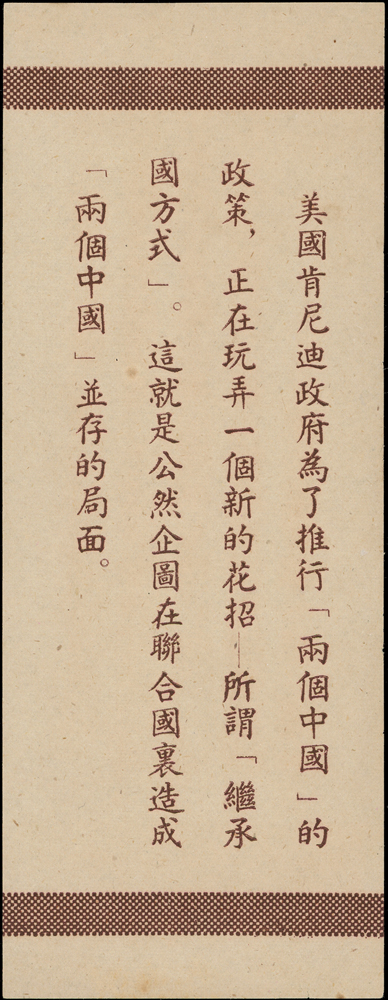 美國肯尼迪政府為了推行「兩個中國」的
政策，正在玩弄一個新的花招—所謂「繼承
國方式」。這就是公然企圖在聯合國裏造成
「兩個中國」並存的局面。